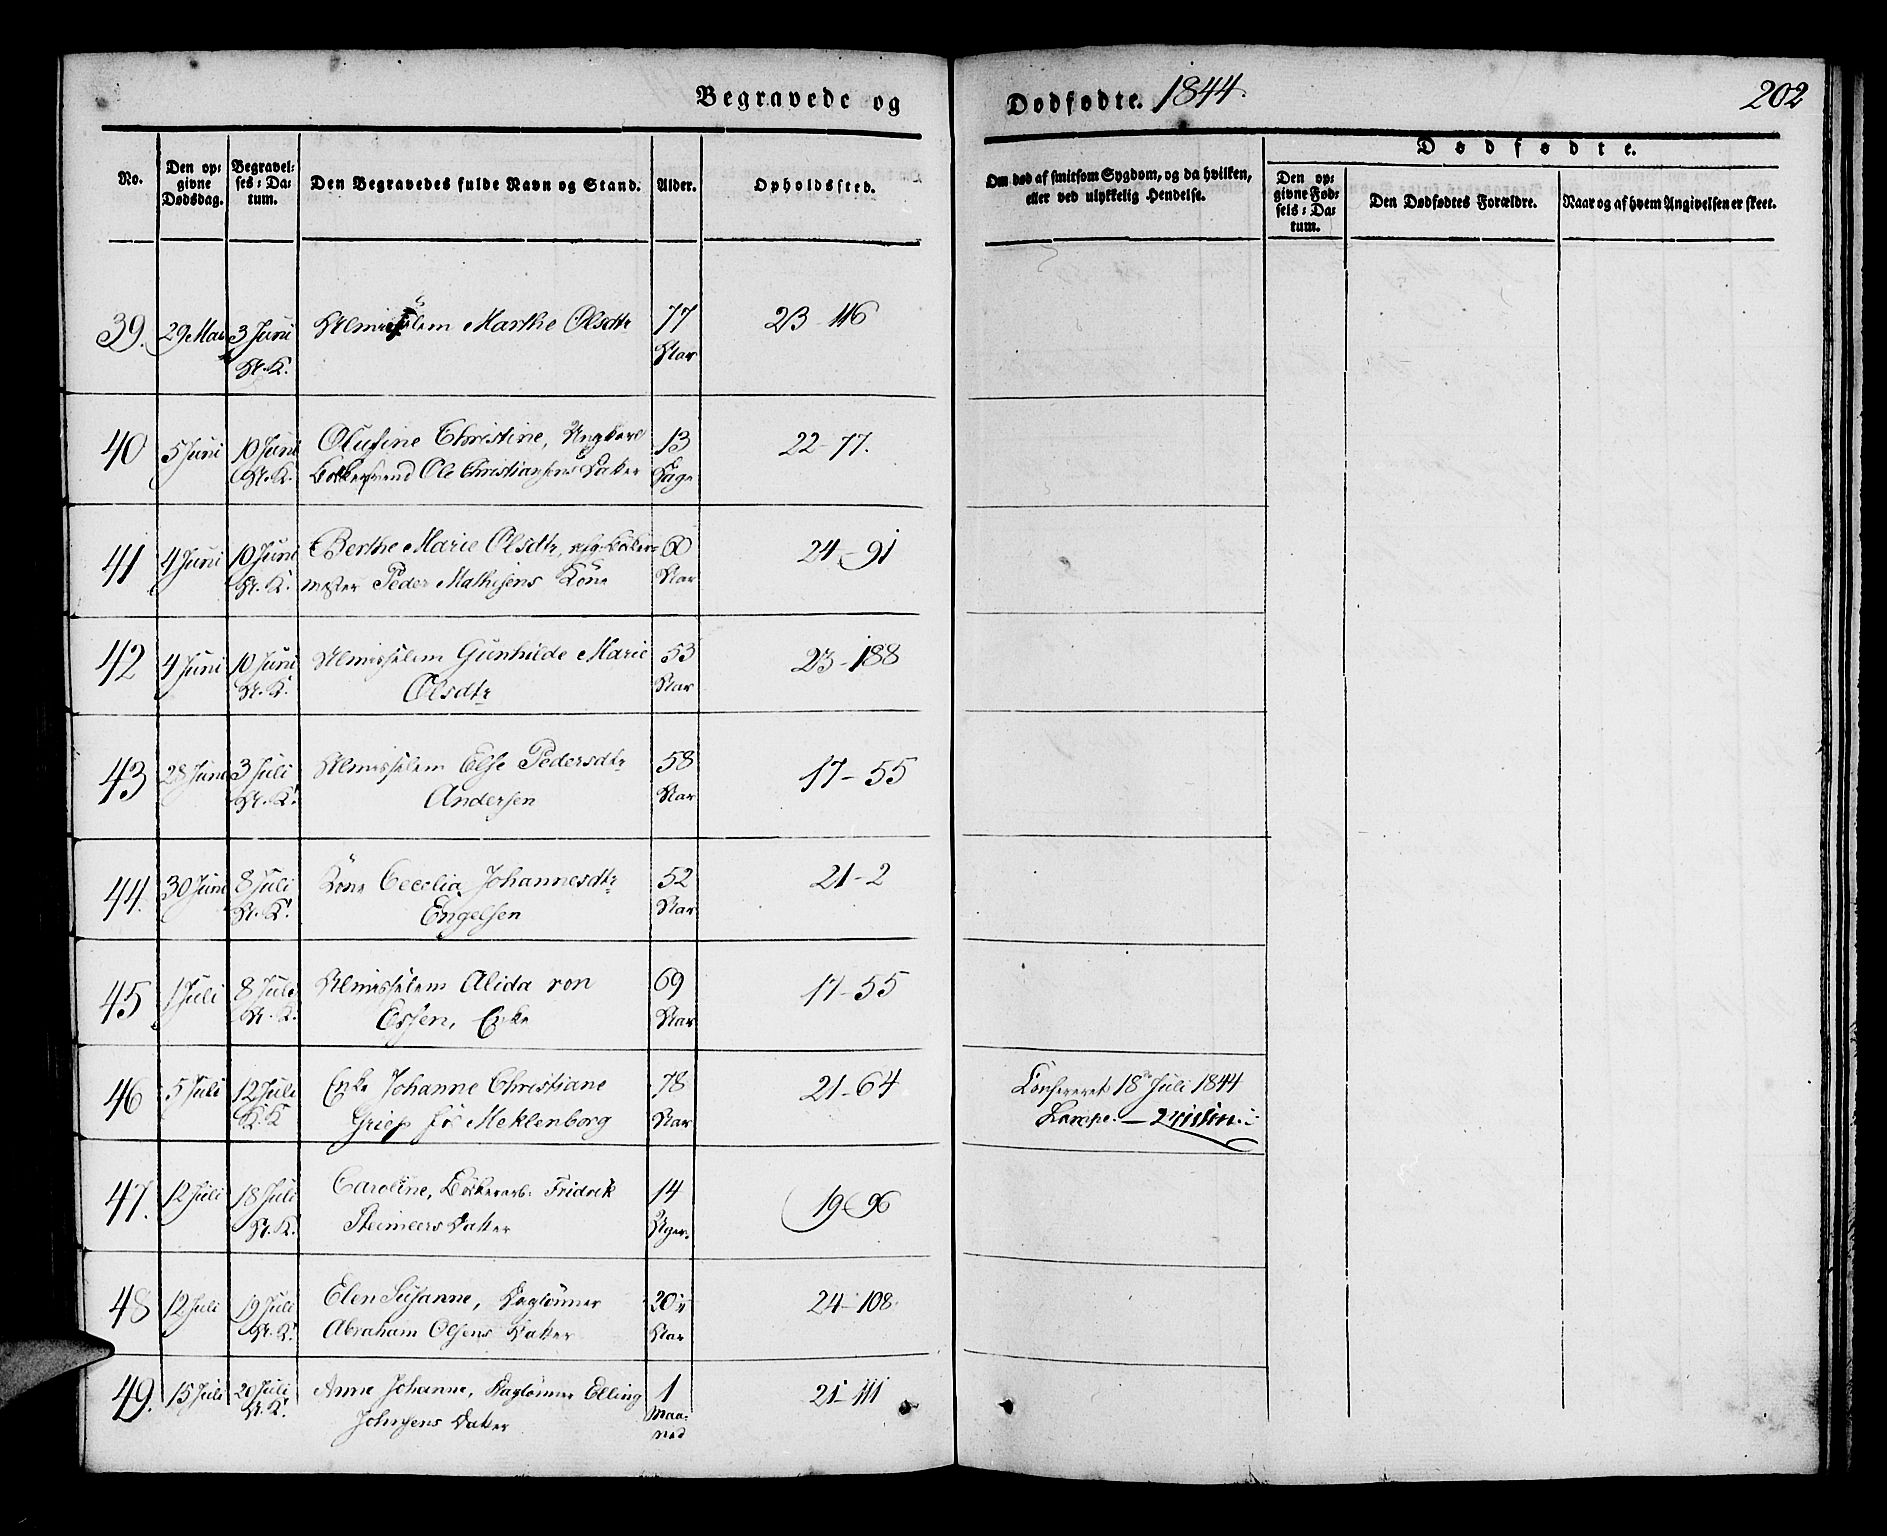 Begravede og
Dødfødte. 1844.
202
No.
Den op-
givne
Dødsdag.
Begravel-
ses-Da-
tum.
Den Begravedes fulde Navn og Stand.
Alder.
Opholdssted.
Om død af smitsom Sygdom, og da hvilken,
eller ved ulykkelig Hendelse.
Dødfødte.
Den op-
givne Fød-
sels-Da-
tum.
Den Dødfødtes Forældre.
Naar og af hvem Angivelsen er skeet.
39. 29 Mai 3 Juni Almisselem Marthe Olsdtr 77 23-116
St. K. Aar
40 5 Juni 10 Juni Olufine Christine, Ungkarl 13 22-77.
St. K. Ole Christiansens Datter Dage
41 4 Juni 10 Juni Berthe Marie Olsdtr, 60 24-91
St. K. mester Peder Mathisens Kone Aar
42 4 Juni 10 Juni Almisselem Gunhilde Marie 53 23-188
St. K. Olsdtr Aar
43 28 Juni 3 Juli Almisselem Else Pedersdtr 58 17-55
St. K. Andersen Aar
44. 30 Juni 8 Juli Kone Cecelia Johannesdtr 52 21-2
St. K. Engelsen Aar
45 1 Juli 8 Juli Almisselem Alida von 69 17-55
St. K. Essen, Enke Aar
46 5 Juli 12 Juli Enke Johanne Christiane 78 21-64 Confereret 18de Juli 1844
K. K. Griep fø Meklenborg Aar
47. 12 Juli 18 Juli Caroline, Bødkerarb: Fridrik 14 19-96
St. K. Steimeers Datter Uger.
48 12 Juli 19 Juli Elen Susanne, Daglønner 20 24-108.
St. K. Abraham Olsens Datter Aar
49. 15 Juli 20 Juli Anne Johanne, Daglønner Elling 1 21-111
St. K. Johnsens Datter Maa-
ned